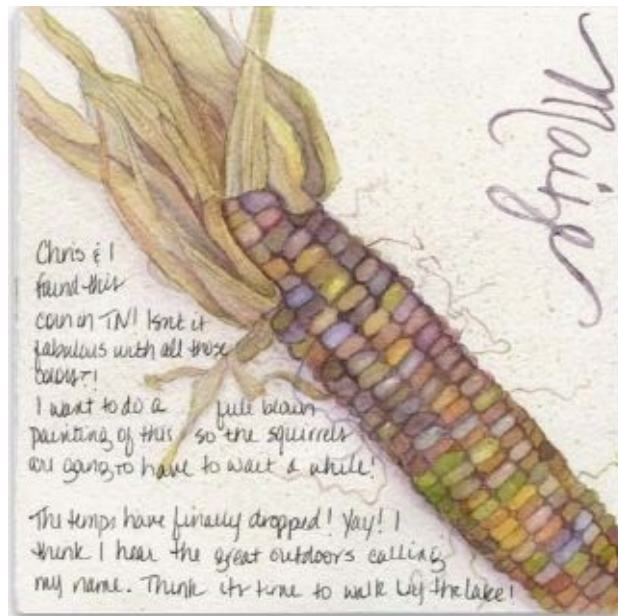 Maize
Chris & I
found this
corn in TN! Isnt it
fabulous with all those
colors?!
I want to do a full blown
painting of this so the squirrels
are going to have to wait a while!
The temps have finally dropped! Yay! I
think I hear the great outdoors calling
my name. Think its time to walk by the lake!